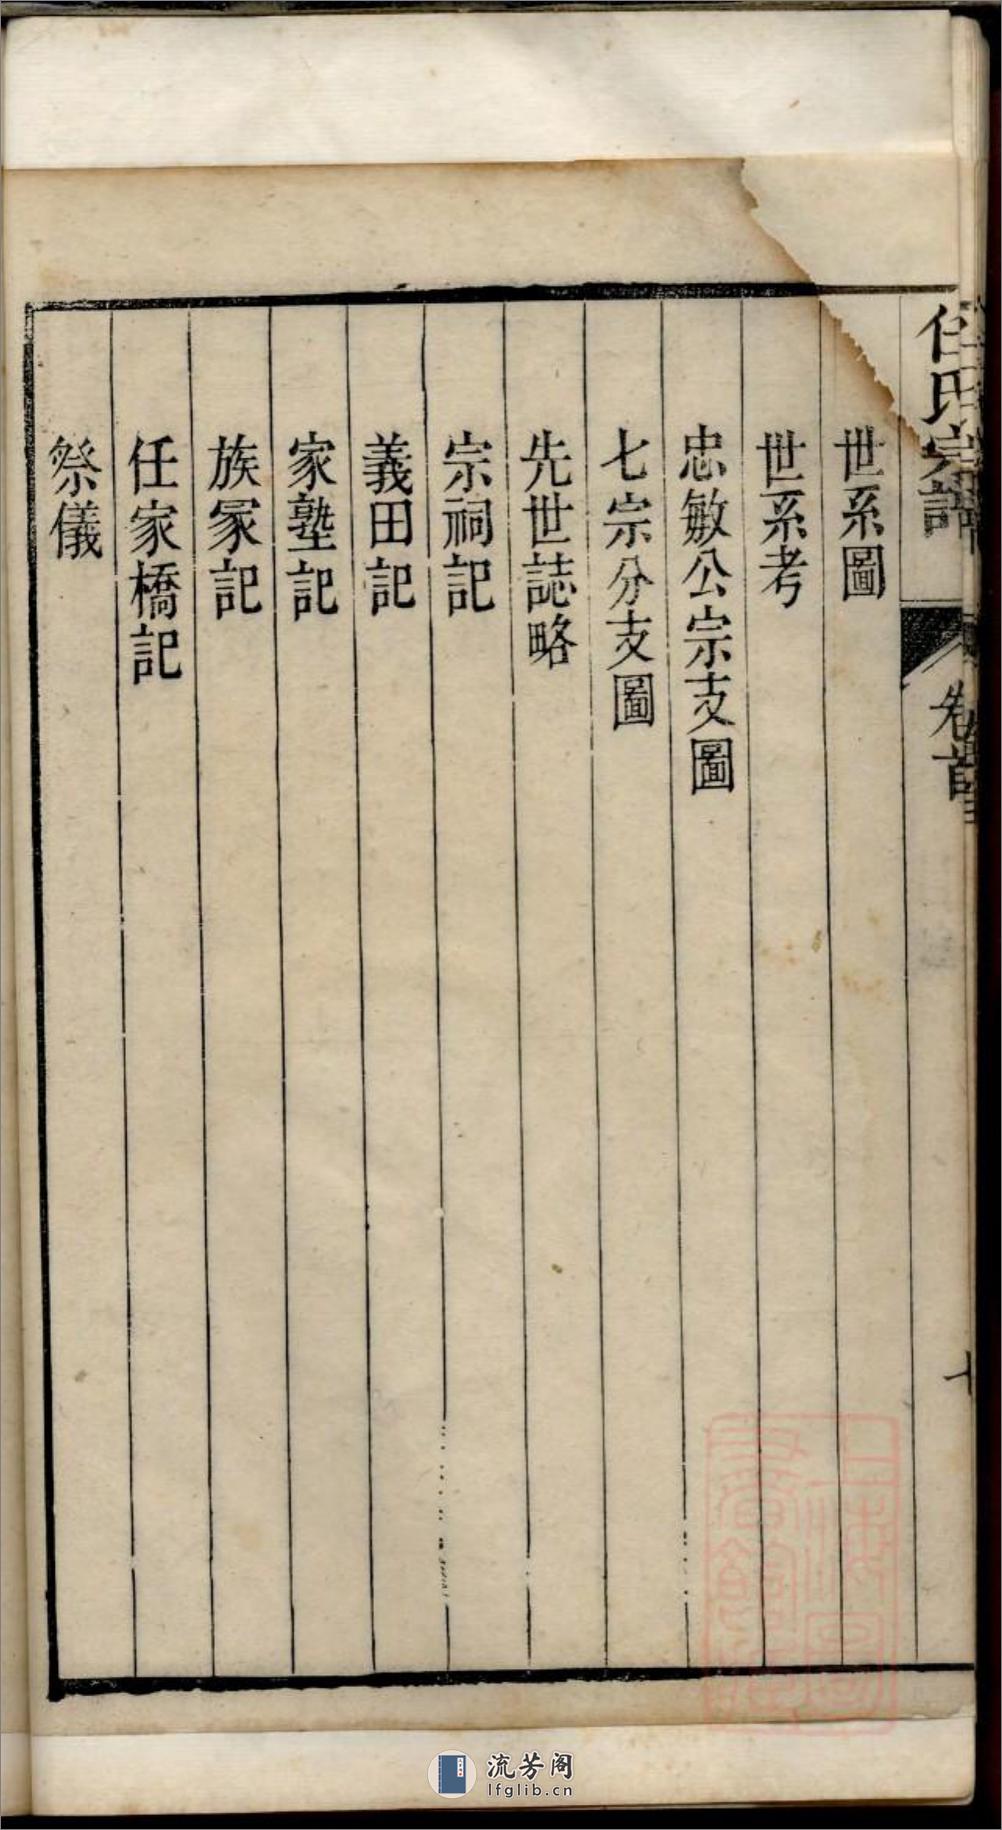 任氏宗譜
卷首
世系圖
世系考
忠敏公宗支圖
七宗分支圖
先世誌略
宗祠記
義田記
家塾記
族冢記
任家橋記
祭儀
流芳阁
lfglib.cn